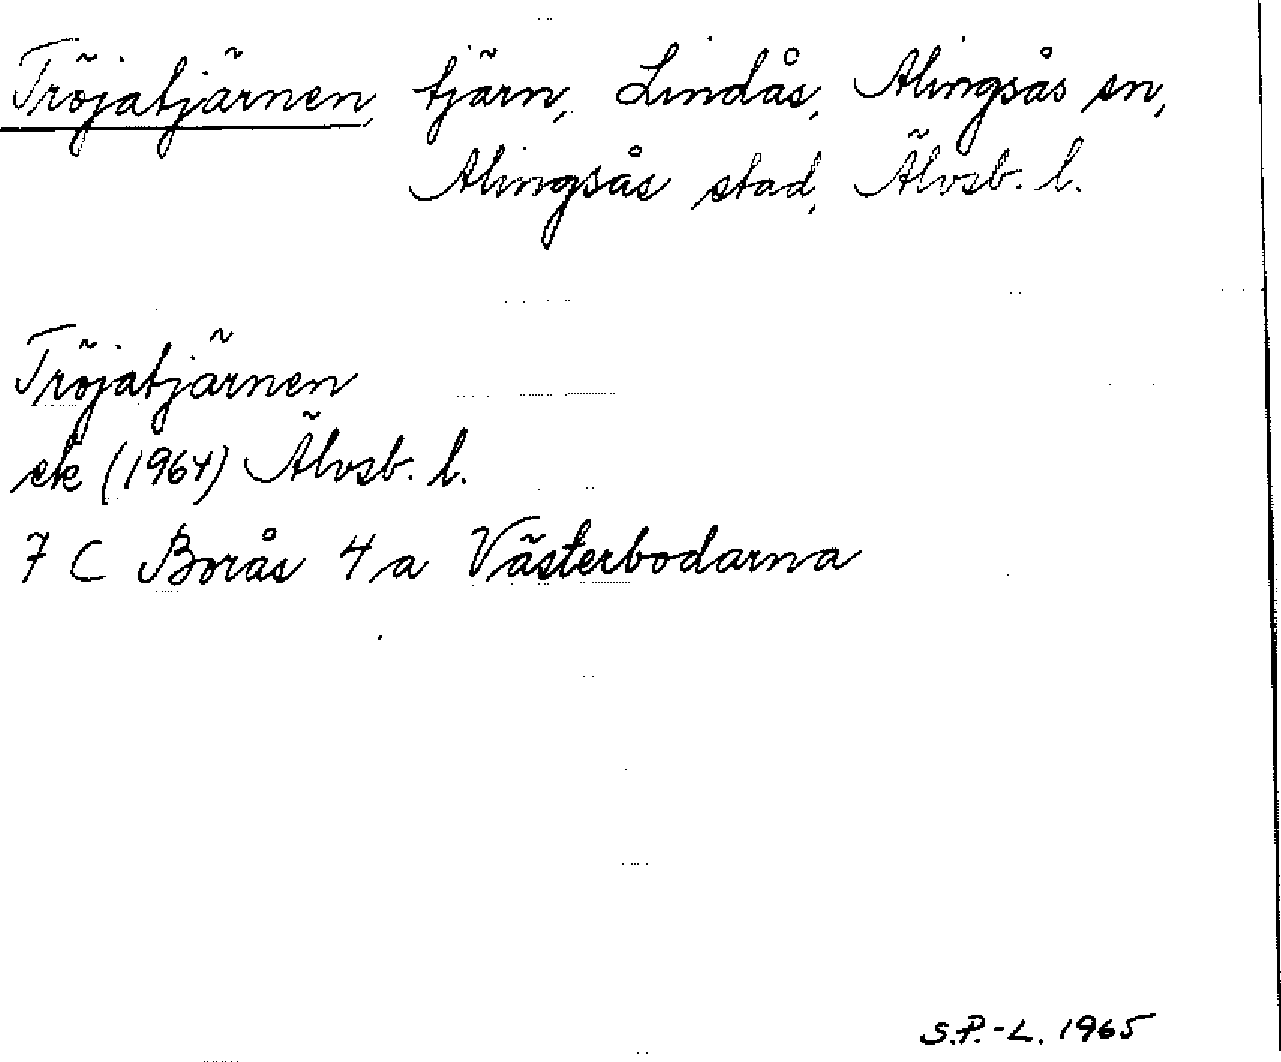 Tröjatjärnen, tjärn, Lindås, Alingsås sn,
Alingsås stad, Älvsb. l.
Tröjatjärnen
ek (1964) Älvsb. l.
7 C Borås 4 a Västerbodarna
S.P.-L. 1965